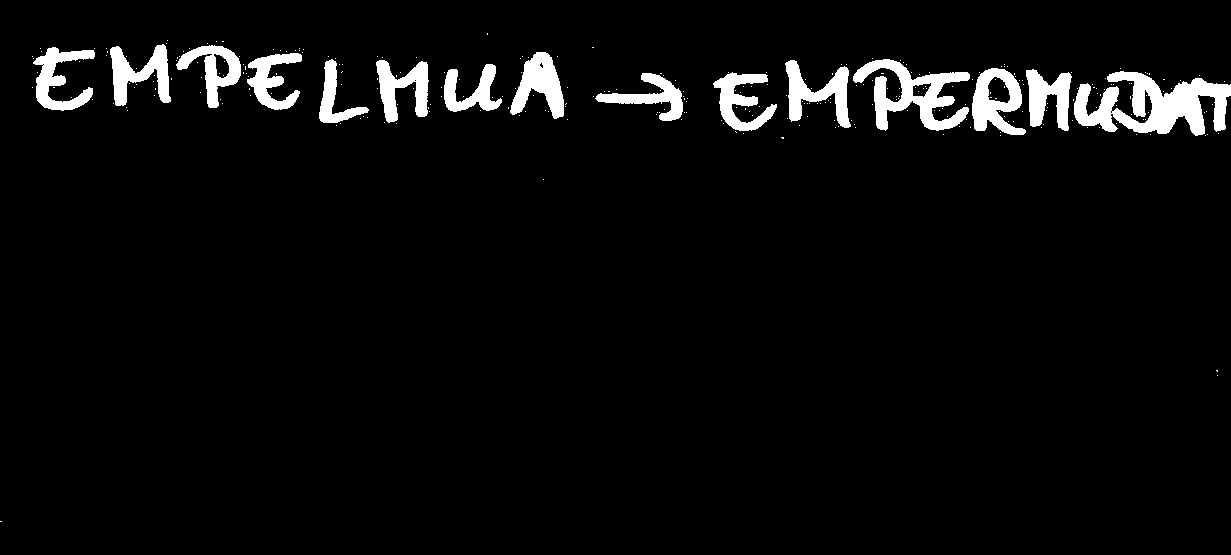 EMPELMUA → EMPERMUDAT